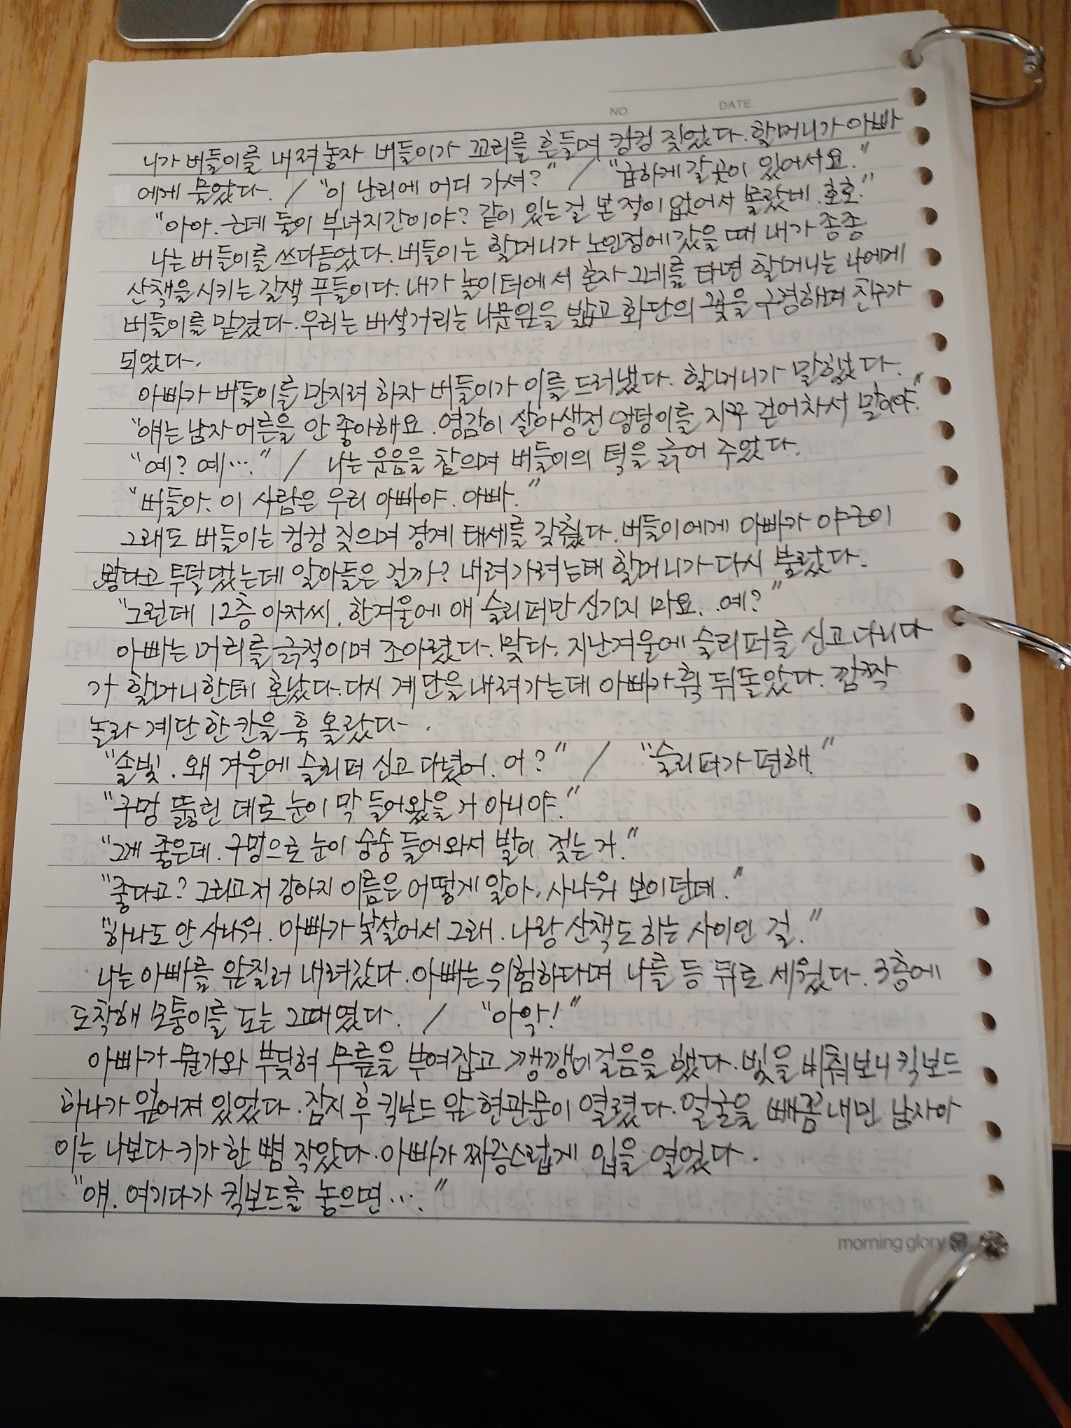 NO. DATE.
니가 버들이를 내려놓자 버들이가 꼬리를 흔들며 컹컹 짖었다. 할머니가 아빠
에게 물었다. / "이 난리에 어디 가셔?" / "급하게 갈 곳이 있어서요."
"아아. 근데 둘이 부녀지간이야? 같이 있는 걸 본 적이 없어서 몰랐네. 호호."
나는 버들이를 쓰다듬었다. 버들이는 할머니가 노인정에 갔을 때 내가 종종
산책을 시키는 갈색 푸들이다. 내가 놀이터에서 혼자 그네를 타면 할머니는 나에게
버들이를 맡겼다. 우리는 버석거리는 나뭇잎을 밟고 화단의 꽃을 구경하며 친구가
되었다.
아빠가 버들이를 만지려 하자 버들이가 이를 드러냈다. 할머니가 말했다.
"얘는 남자 어른을 안 좋아해요. 영감이 살아생전 엉덩이를 자꾸 걷어차서 말이야."
"예? 예…." / 나는 웃음을 참으며 버들이의 턱을 긁어 주었다.
"버들아. 이 사람은 우리 아빠야. 아빠."
그래도 버들이는 컹컹 짖으며 경계 태세를 갖췄다. 버들이에게 아빠가 야근이
많다고 투덜댔는데 알아들은 걸까? 내려가려는데 할머니가 다시 불렀다.
"그런데 12층 아저씨. 한겨울에 애 슬리퍼만 신기지 마요. 예?"
아빠는 머리를 긁적이며 조아렸다. 맞다. 지난겨울에 슬리퍼를 신고 다니다
가 할머니한테 혼났다. 다시 계단을 내려가는데 아빠가 휙 뒤돌았다. 깜짝
놀라 계단 한 칸을 훅 올랐다.
"솔빛. 왜 겨울에 슬리퍼 신고 다녔어. 어?" / "슬리퍼가 편해."
"구멍 뚫린 데로 눈이 막 들어왔을 거 아니야."
"그게 좋은데. 구멍으로 눈이 숭숭 들어와서 발이 젖는 거."
"좋다고? 그리고 저 강아지 이름은 어떻게 알아. 사나워 보이던데."
"하나도 안 사나워. 아빠가 낯설어서 그래. 나랑 산책도 하는 사이인 걸."
나는 아빠를 앞질러 내려갔다. 아빠는 위험하다며 나를 등 뒤로 세웠다. 3층에
도착해 모퉁이를 도는 그때였다. / "아악!"
아빠가 뭔가와 부딪혀 무릎을 부여잡고 깽깽이걸음을 했다. 빛을 비춰보니 킥보드
하나가 엎어져 있었다. 잠시 후 킥보드 앞 현관문이 열렸다. 얼굴을 빼꼼 내민 남자아
이는 나보다 키가 한 뼘 작았다. 아빠가 짜증스럽게 입을 열었다.
"얘. 여기다가 킥보드를 놓으면…."
morning glory